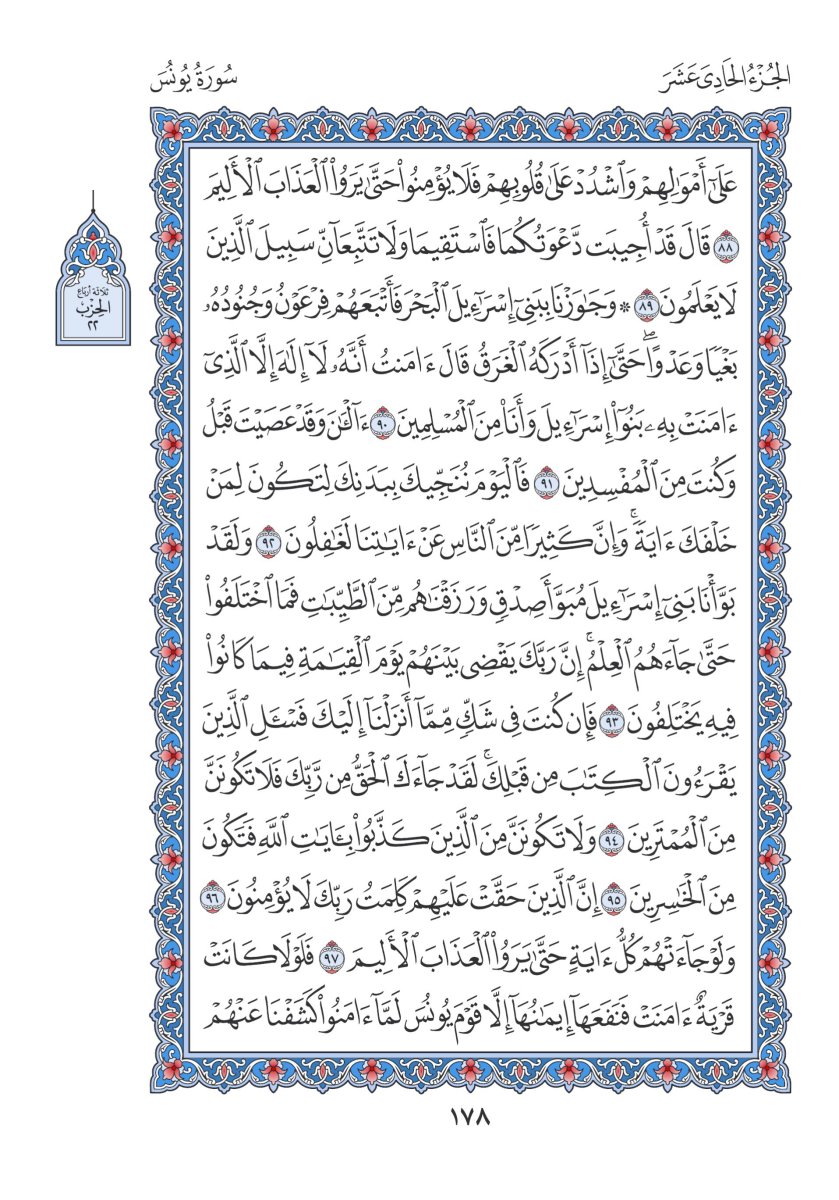 الجُزْءُ الحَادِيَ عَشَرَ
سُورَةُ يُونُسَ
عَلَىٰٓ أَمۡوَٰلِهِمۡ وَٱشۡدُدۡ عَلَىٰ قُلُوبِهِمۡ فَلَا يُؤۡمِنُواْ حَتَّىٰ يَرَوُاْ ٱلۡعَذَابَ ٱلۡأَلِيمَ
٨٨ قَالَ قَدۡ أُجِيبَت دَّعۡوَتُكُمَا فَٱسۡتَقِيمَا وَلَا تَتَّبِعَآنِّ سَبِيلَ ٱلَّذِينَ
لَا يَعۡلَمُونَ ٨٩ * وَجَٰوَزۡنَا بِبَنِيٓ إِسۡرَٰٓءِيلَ ٱلۡبَحۡرَ فَأَتۡبَعَهُمۡ فِرۡعَوۡنُ وَجُنُودُهُۥ
بَغۡيٗا وَعَدۡوًاۖ حَتَّىٰٓ إِذَآ أَدۡرَكَهُ ٱلۡغَرَقُ قَالَ ءَامَنتُ أَنَّهُۥ لَآ إِلَٰهَ إِلَّا ٱلَّذِيٓ
ءَامَنَتۡ بِهِۦ بَنُوٓاْ إِسۡرَٰٓءِيلَ وَأَنَا۠ مِنَ ٱلۡمُسۡلِمِينَ ٩٠ ءَآلۡـَٰٔنَ وَقَدۡ عَصَيۡتَ قَبۡلُ
وَكُنتَ مِنَ ٱلۡمُفۡسِدِينَ ٩١ فَٱلۡيَوۡمَ نُنَجِّيكَ بِبَدَنِكَ لِتَكُونَ لِمَنۡ
خَلۡفَكَ ءَايَةٗۚ وَإِنَّ كَثِيرٗا مِّنَ ٱلنَّاسِ عَنۡ ءَايَٰتِنَا لَغَٰفِلُونَ ٩٢ وَلَقَدۡ
بَوَّأۡنَا بَنِيٓ إِسۡرَٰٓءِيلَ مُبَوَّأَ صِدۡقٖ وَرَزَقۡنَٰهُم مِّنَ ٱلطَّيِّبَٰتِ فَمَا ٱخۡتَلَفُواْ
حَتَّىٰ جَآءَهُمُ ٱلۡعِلۡمُۚ إِنَّ رَبَّكَ يَقۡضِي بَيۡنَهُمۡ يَوۡمَ ٱلۡقِيَٰمَةِ فِيمَا كَانُواْ
فِيهِ يَخۡتَلِفُونَ ٩٣ فَإِن كُنتَ فِي شَكّٖ مِّمَّآ أَنزَلۡنَآ إِلَيۡكَ فَسۡـَٔلِ ٱلَّذِينَ
يَقۡرَءُونَ ٱلۡكِتَٰبَ مِن قَبۡلِكَۚ لَقَدۡ جَآءَكَ ٱلۡحَقُّ مِن رَّبِّكَ فَلَا تَكُونَنَّ
مِنَ ٱلۡمُمۡتَرِينَ ٩٤ وَلَا تَكُونَنَّ مِنَ ٱلَّذِينَ كَذَّبُواْ بِـَٔايَٰتِ ٱللَّهِ فَتَكُونَ
مِنَ ٱلۡخَٰسِرِينَ ٩٥ إِنَّ ٱلَّذِينَ حَقَّتۡ عَلَيۡهِمۡ كَلِمَتُ رَبِّكَ لَا يُؤۡمِنُونَ ٩٦
وَلَوۡ جَآءَتۡهُمۡ كُلُّ ءَايَةٍ حَتَّىٰ يَرَوُاْ ٱلۡعَذَابَ ٱلۡأَلِيمَ ٩٧ فَلَوۡلَا كَانَتۡ
قَرۡيَةٌ ءَامَنَتۡ فَنَفَعَهَآ إِيمَٰنُهَآ إِلَّا قَوۡمَ يُونُسَ لَمَّآ ءَامَنُواْ كَشَفۡنَا عَنۡهُمۡ
ثلاثة أرباع
الحِزْب
٢٢
١٧٨